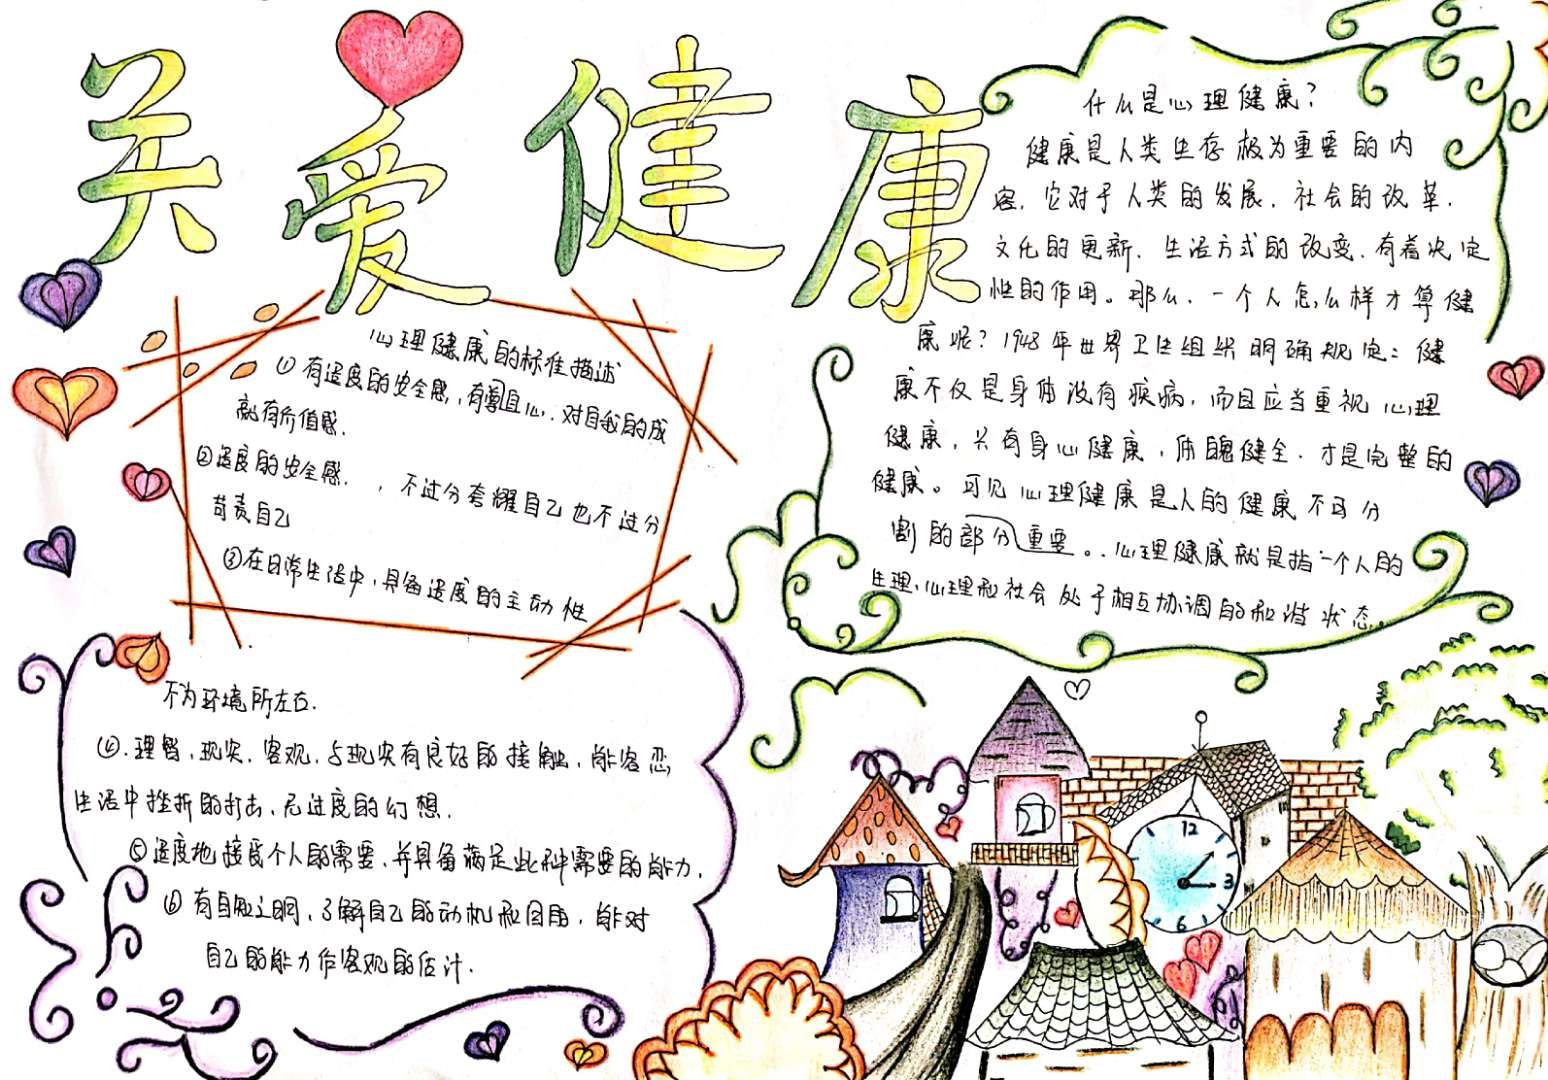 关爱健康
心理健康的标准描述
①有适度的安全感,有尊且心.对自我的成
就有价值感.
②适度的安全感.,不过分夸耀自己也不过分
苛责自己
③在日常生活中,具备适度的主动性
不为环境所左右.
④.理智,现实,客观,与现实有良好的接触,能容忍
生活中挫折的打击,无过度的幻想.
⑤适度地接受个人的需要,并具备满足此种需要的能力.
⑥有自知之明,了解自己的动机和目的,能对
自己的能力作客观的估计.
什么是心理健康?
健康是人类生存极为重要的内
容,它对于人类的发展,社会的改革,
文化的更新,生活方式的改变,有着决定
性的作用。那么,一个人怎么样才算健
康呢?1948年世界卫生组织明确规定:健
康不仅是身体没有疾病,而且应当重视心理
健康,只有身心健康,体魄健全.才是完整的
健康。可见心理健康是人的健康不可分
割的部分重要。.心理健康就是指一个人的
生理,心理和社会处于相互协调的和谐状态。
12
3
6